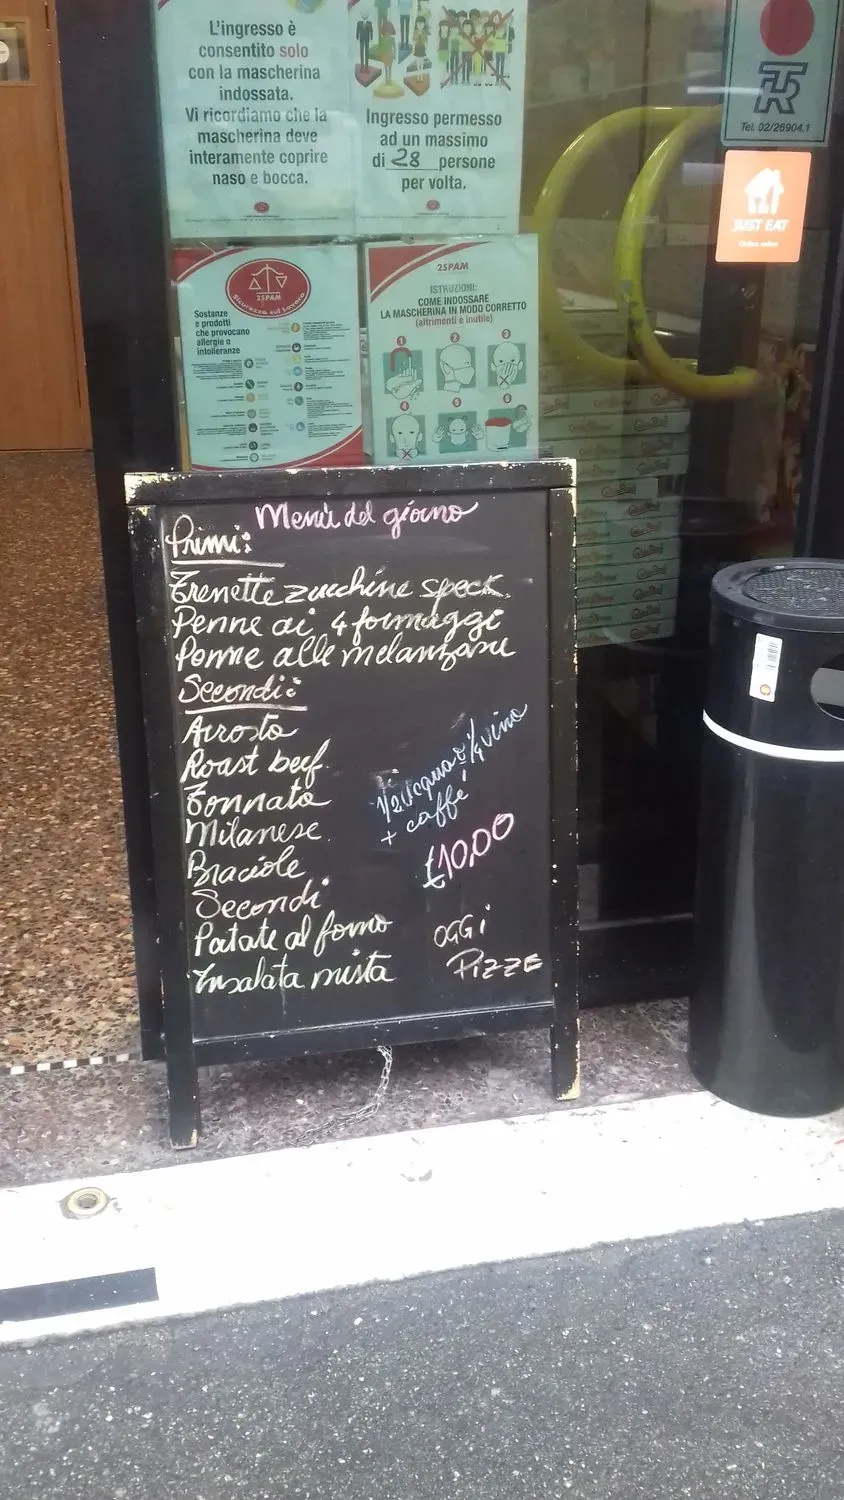 L'ingresso è
consentito solo
con la mascherina
indossata.
Vi ricordiamo che la
mascherina deve
interamente coprire
naso e bocca.
Ingresso permesso
ad un massimo
di 28 persone
per volta.
Tel. 02/26904.1
JUST EAT
2SPAM
Sicurezza sul Lavoro
Sostanze
e prodotti
che provocano
allergie o
intolleranze
2SPAM
ISTRUZIONI:
COME INDOSSARE
LA MASCHERINA IN MODO CORRETTO
(altrimenti è inutile)
1 2 3
4 5 6
Menù del giorno
Primi:
Trenette zucchine speck
Penne ai 4 formaggi
Penne alle melanzane
Secondi:
Arrosto
Roast beef
Tonnato
Milanese
Braciole
Secondi
Patate al forno
Insalata mista
1/2 acqua o 1/4 vino
+ caffé
£10,00
OGGI
PIZZE